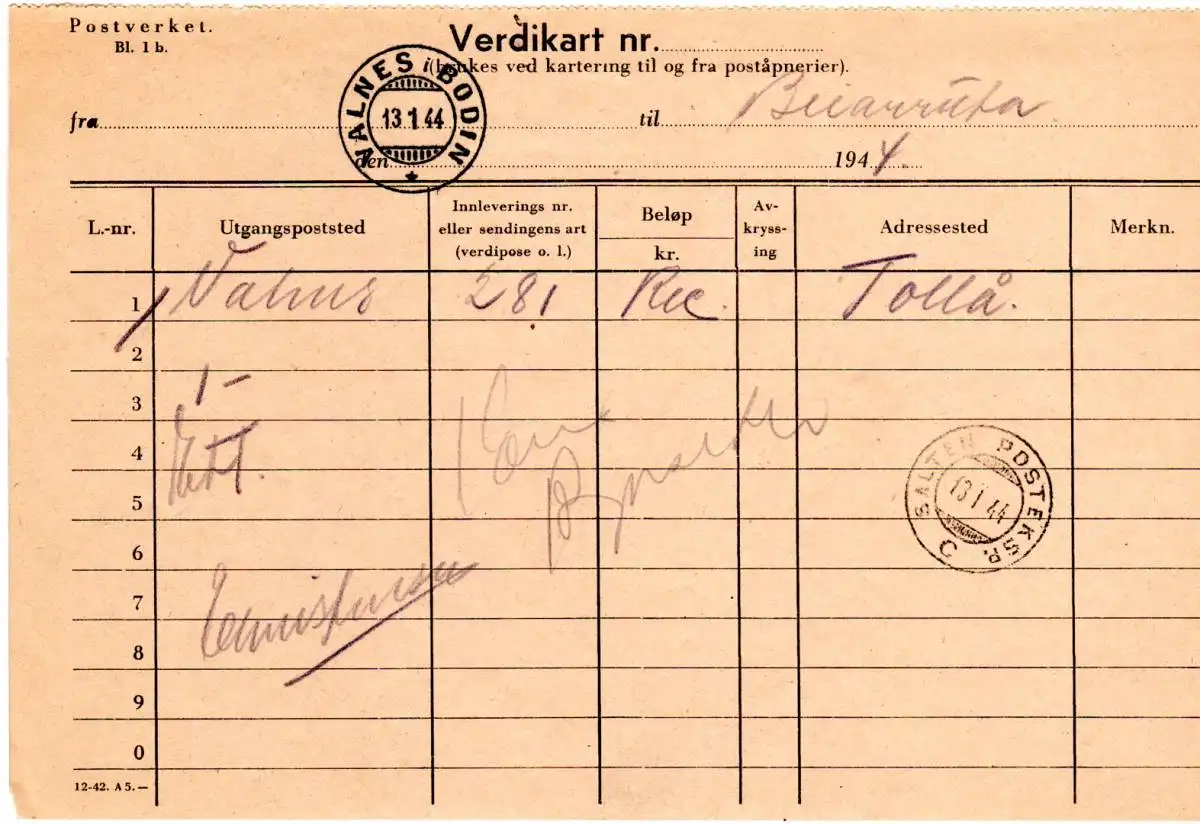 Postverket.
Bl. 1 b.
Verdikart nr.
(brukes ved kartering til og fra poståpnerier).
VALNES i BODIN
13.1.44
fra til Beiarruta
den 1944.
L.-nr. Utgangspoststed Innleverings nr. eller sendingens art (verdipose o. l.) Beløp kr. Av-kryss-ing Adressested Merkn.
1 Valnes 281 Rec. Tollå.
2
1 –
3
4
5
SALTEN POSTEKSP. C
13 1 44
6
7
8
9
0
12-42. A 5.—